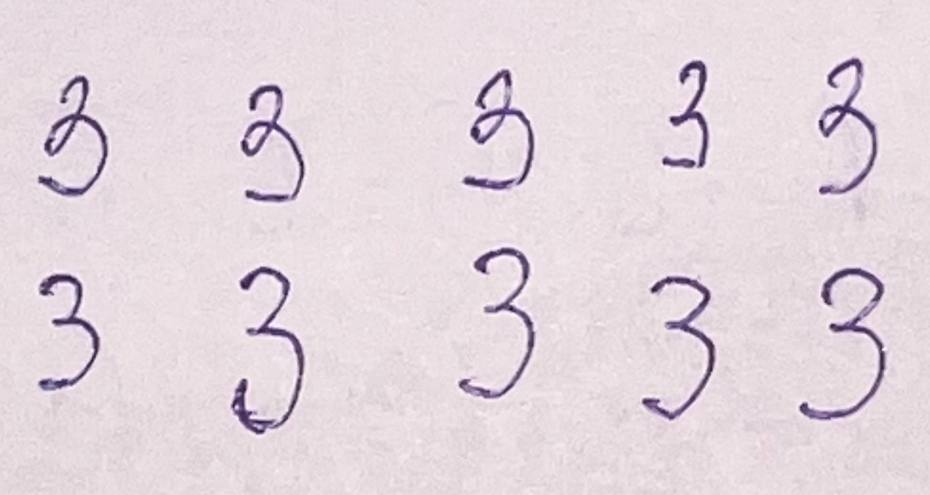 3 3 3 3 3
3 3 3 3 3